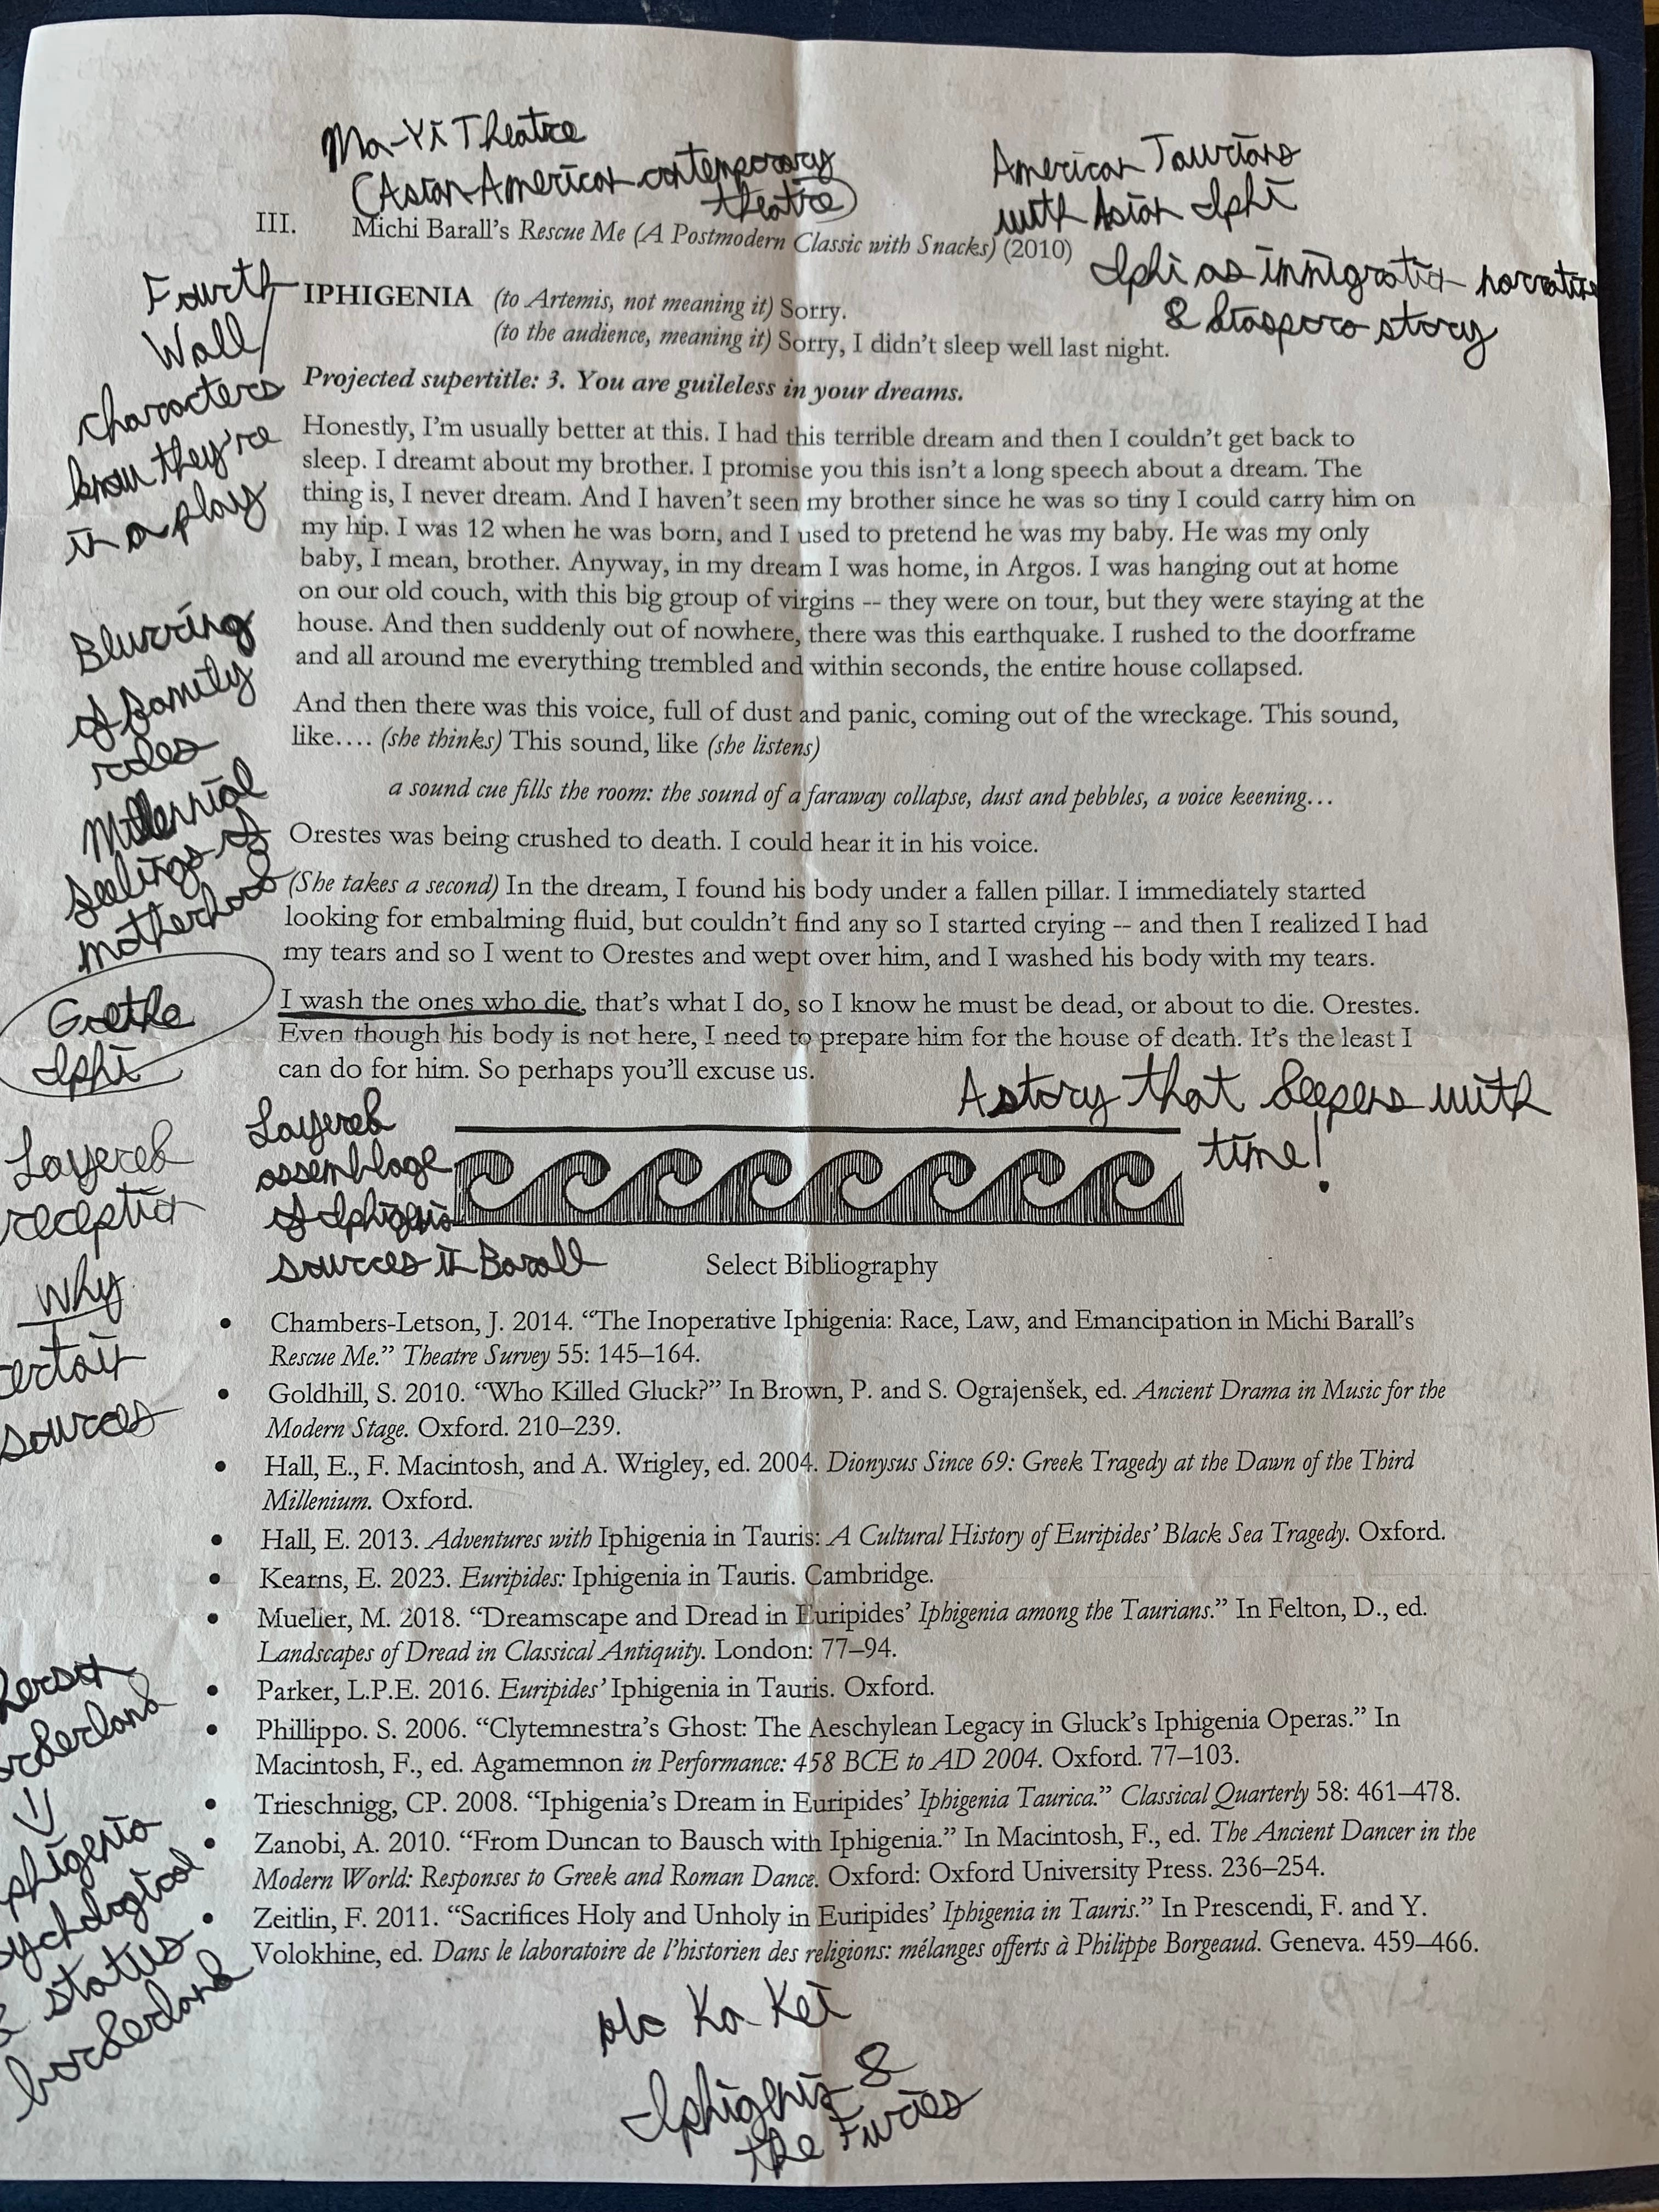 Ma-Yi Theatre
(Asian-American contemporary
theatre)
American Taurians
with Asian Iphi
III. Michi Barall's Rescue Me (A Postmodern Classic with Snacks) (2010)
Iphi as immigration narrative
& diaspora story
Fourth
Wall/
characters
know they're
in a play
IPHIGENIA (to Artemis, not meaning it) Sorry.
(to the audience, meaning it) Sorry, I didn't sleep well last night.
Projected supertitle: 3. You are guileless in your dreams.
Honestly, I'm usually better at this. I had this terrible dream and then I couldn't get back to
sleep. I dreamt about my brother. I promise you this isn't a long speech about a dream. The
thing is, I never dream. And I haven't seen my brother since he was so tiny I could carry him on
my hip. I was 12 when he was born, and I used to pretend he was my baby. He was my only
baby, I mean, brother. Anyway, in my dream I was home, in Argos. I was hanging out at home
on our old couch, with this big group of virgins -- they were on tour, but they were staying at the
house. And then suddenly out of nowhere, there was this earthquake. I rushed to the doorframe
and all around me everything trembled and within seconds, the entire house collapsed.
Blurring
of family
roles
Millennial
feelings of
motherhood
And then there was this voice, full of dust and panic, coming out of the wreckage. This sound,
like…. (she thinks) This sound, like (she listens)
a sound cue fills the room: the sound of a faraway collapse, dust and pebbles, a voice keening…
Orestes was being crushed to death. I could hear it in his voice.
(She takes a second) In the dream, I found his body under a fallen pillar. I immediately started
looking for embalming fluid, but couldn't find any so I started crying -- and then I realized I had
my tears and so I went to Orestes and wept over him, and I washed his body with my tears.
Goethe
Iphi
I wash the ones who die, that's what I do, so I know he must be dead, or about to die. Orestes.
Even though his body is not here, I need to prepare him for the house of death. It's the least I
can do for him. So perhaps you'll excuse us.
A story that deepens with
time!
Layered
reception
Why
certain
sources
Layered
assemblage
of Iphigenia
sources in Barall
Select Bibliography
• Chambers-Letson, J. 2014. “The Inoperative Iphigenia: Race, Law, and Emancipation in Michi Barall's
Rescue Me.” Theatre Survey 55: 145–164.
• Goldhill, S. 2010. “Who Killed Gluck?” In Brown, P. and S. Ograjenšek, ed. Ancient Drama in Music for the
Modern Stage. Oxford. 210–239.
• Hall, E., F. Macintosh, and A. Wrigley, ed. 2004. Dionysus Since 69: Greek Tragedy at the Dawn of the Third
Millenium. Oxford.
• Hall, E. 2013. Adventures with Iphigenia in Tauris: A Cultural History of Euripides' Black Sea Tragedy. Oxford.
• Kearns, E. 2023. Euripides: Iphigenia in Tauris. Cambridge.
• Mueller, M. 2018. “Dreamscape and Dread in Euripides' Iphigenia among the Taurians.” In Felton, D., ed.
Landscapes of Dread in Classical Antiquity. London: 77–94.
• Parker, L.P.E. 2016. Euripides' Iphigenia in Tauris. Oxford.
• Phillippo. S. 2006. “Clytemnestra's Ghost: The Aeschylean Legacy in Gluck's Iphigenia Operas.” In
Macintosh, F., ed. Agamemnon in Performance: 458 BCE to AD 2004. Oxford. 77–103.
• Trieschnigg, CP. 2008. “Iphigenia's Dream in Euripides' Iphigenia Taurica.” Classical Quarterly 58: 461–478.
• Zanobi, A. 2010. “From Duncan to Bausch with Iphigenia.” In Macintosh, F., ed. The Ancient Dancer in the
Modern World: Responses to Greek and Roman Dance. Oxford: Oxford University Press. 236–254.
• Zeitlin, F. 2011. “Sacrifices Holy and Unholy in Euripides' Iphigenia in Tauris.” In Prescendi, F. and Y.
Volokhine, ed. Dans le laboratoire de l'historien des religions: mélanges offerts à Philippe Borgeaud. Geneva. 459–466.
borderland
Iphigenia
psychological
& status
borderland
Ka Kei
Iphigenia &
the Furies